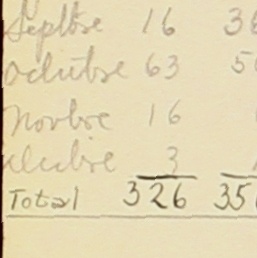 Septbre 16 3
Octubre 63 5
Novbre 16
Dicbre 3
Total 326 35